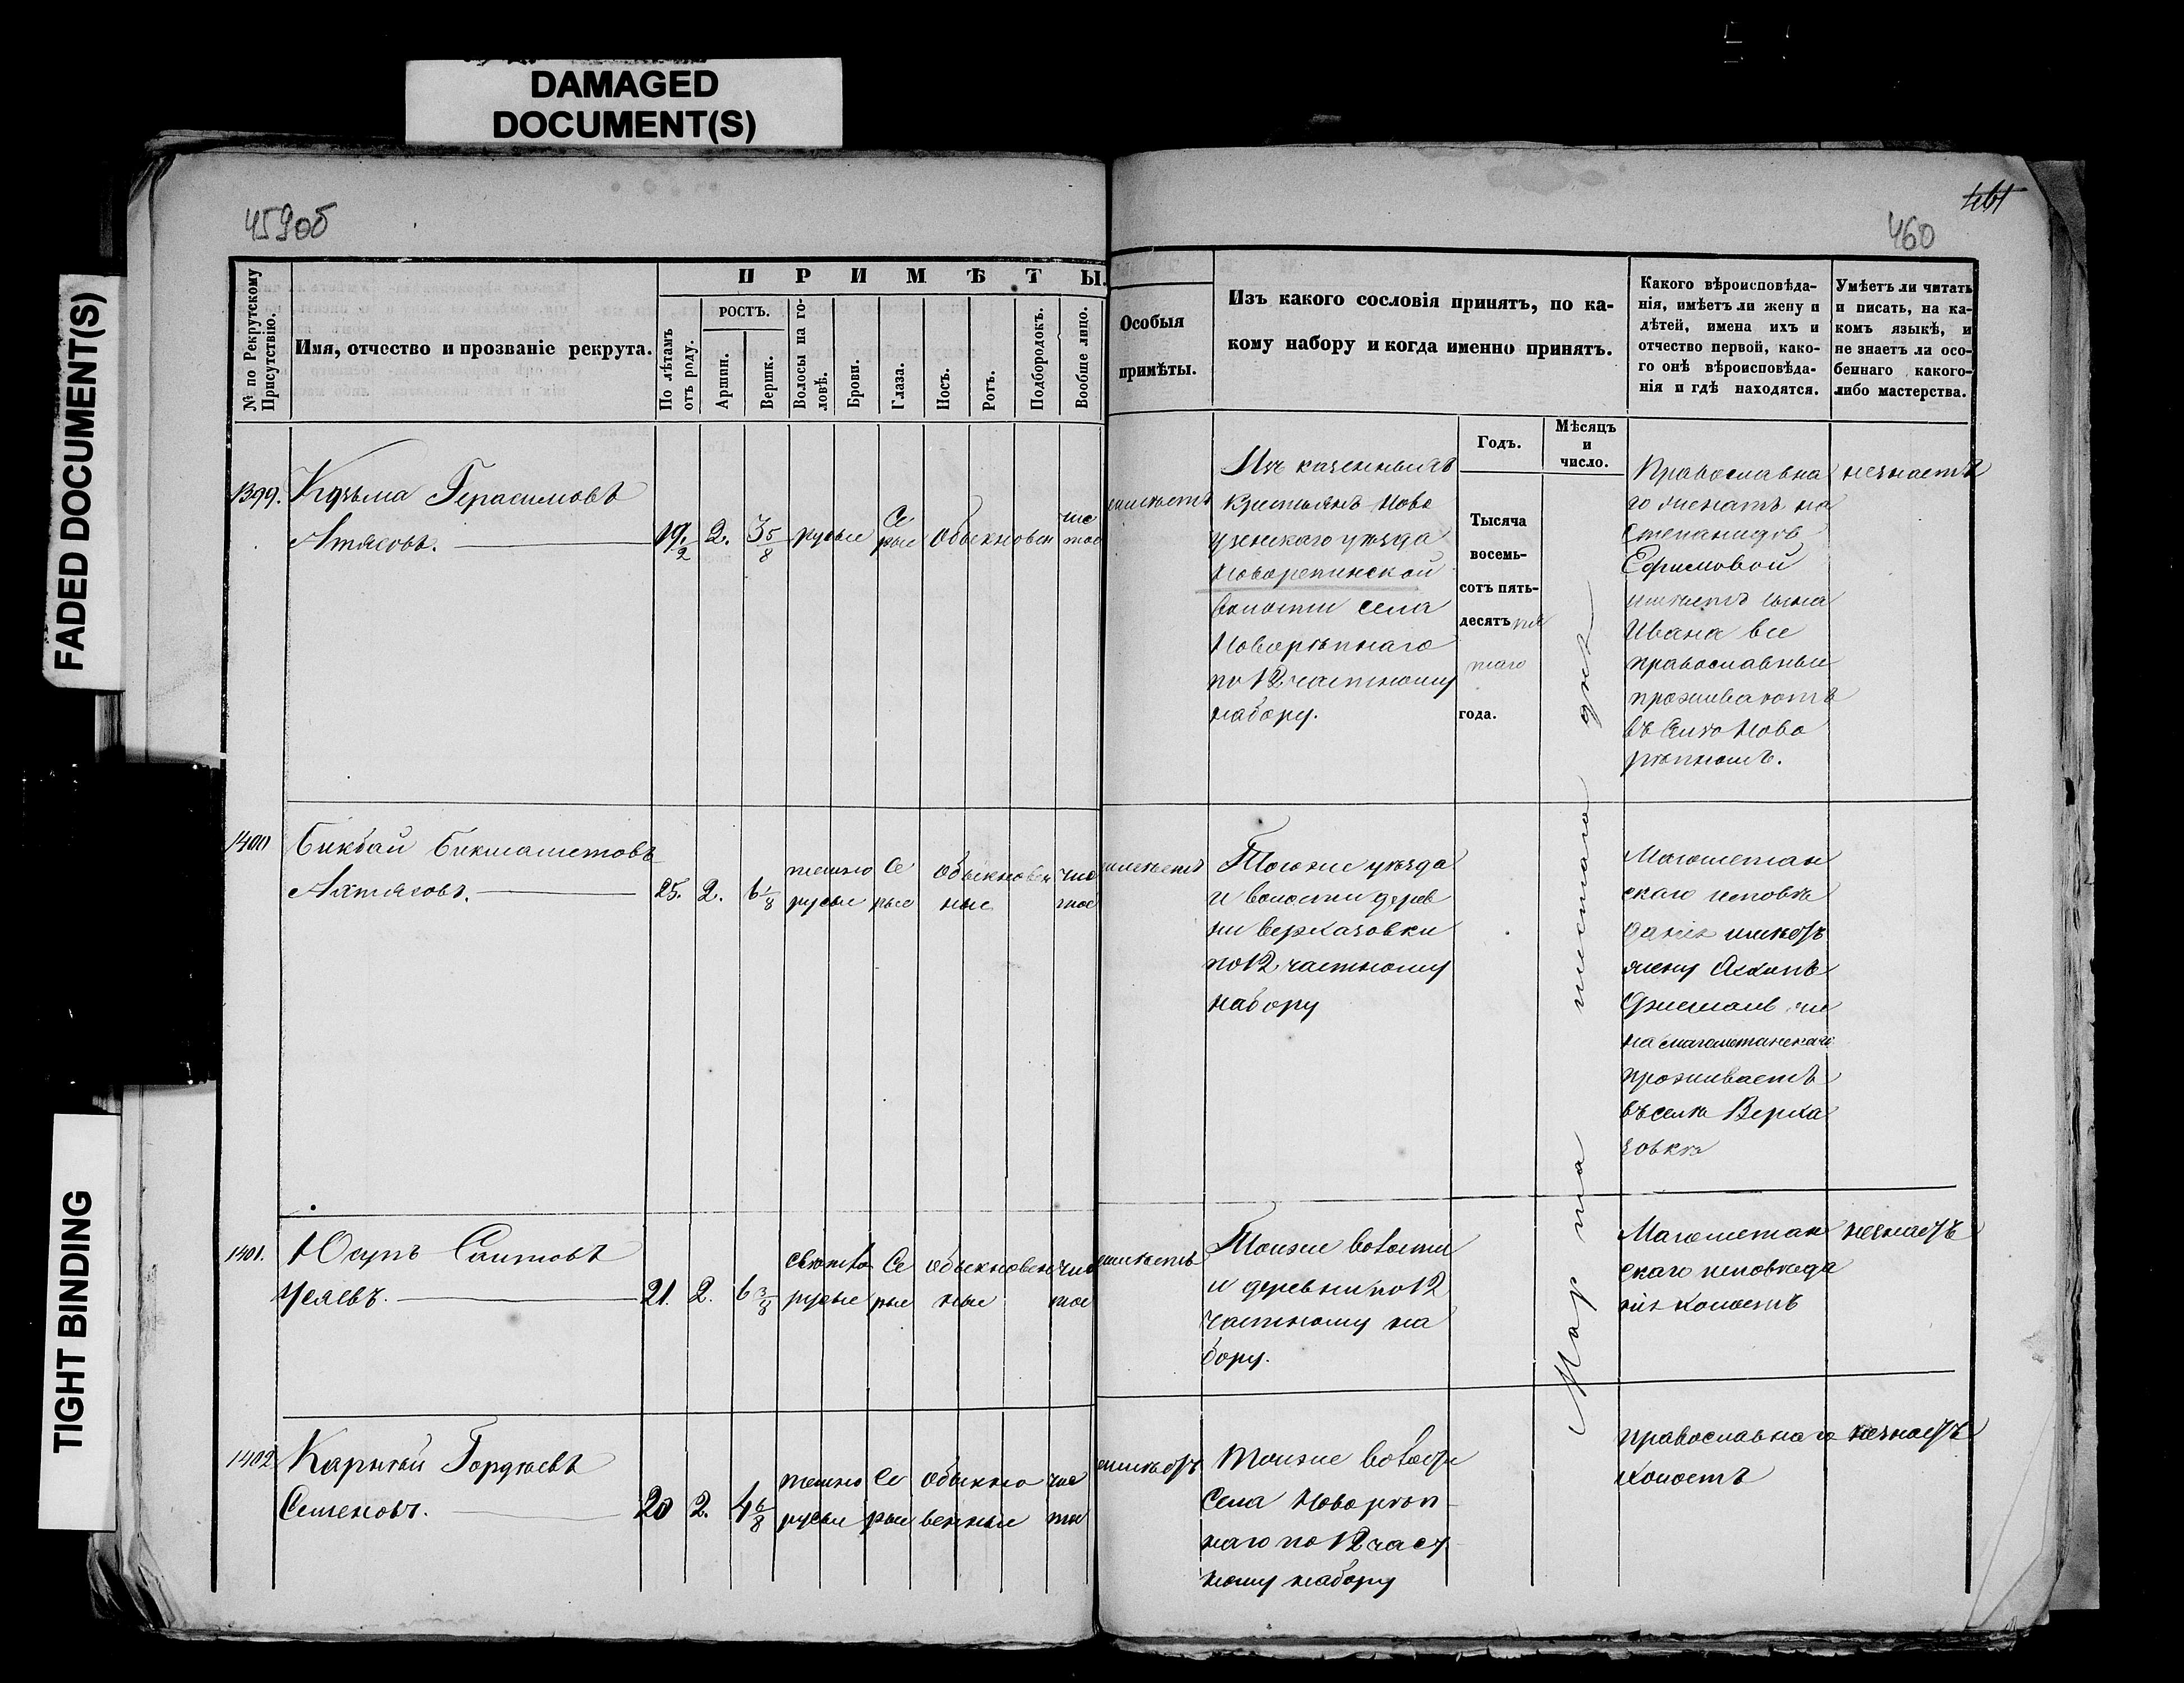 DAMAGED
DOCUMENT(S)
FADED DOCUMENT(S)
TIGHT BINDING
459об
461
460
№ по Рекрутскому
Присутствію.
Имя, отчество и прозваніе рекрута.
П Р И М Ѣ Т Ы.
По лѣтамъ
отъ роду.
РОСТЪ.
Аршин.
Вершк.
Волосы на го-
ловѣ.
Брови.
Глаза.
Носъ.
Ротъ.
Подбородокъ.
Вообще лицо.
Особыя
примѣты.
Изъ какого сословія принятъ, по ка-
кому набору и когда именно принятъ.
Годъ.
Мѣсяцъ
и
число.
Какого вѣроисповѣда-
нія, имѣетъ ли жену и
дѣтей, имена ихъ и
отчество первой, како-
го онѣ вѣроисповѣда-
нія и гдѣ находятся.
Умѣетъ ли читать
и писать, на ка-
комъ языкѣ, и
не знаетъ ли осо-
беннаго какого-
либо мастерства.
1399. Кузьма Герасимовъ
Атясовъ.
19 1/2 2. 3 5/8 русые Се
рые Обыкновен чис
тое
неимѣетъ
Изъ казенныхъ
Крестьянъ Ново
узенскаго уѣзда
Новорепинской
волости села
Новорѣпнаго
по 12 частному
набору.
Тысяча
восемь-
сотъ пять-
десятъ пя
таго
года.
Марта шестаго дня
Православна
го женатъ на
Степанидѣ
Ефимовой
имѣетъ сына
Ивана все
православные
проживаютъ
въ Селѣ Ново
рѣпномъ.
незнаетъ
1400 Бикбай Бикмаметовъ
Ахтясовъ.
25. 2. 6 1/8
темно
русые
Се
рые
Обыкновен
ные
чис
тое
неимѣетъ
Тогоже уѣзда
и волости дерев
ни Верхазовки
по 12 частному
набору
Магометан
скаго исповѣ
данія имѣетъ
жену
на магометанскаго
проживаетъ
въ селѣ Верха
зовкѣ
1401. Юсупъ Саитовъ
Усяевъ.
21. 2. 6 3/8
свѣтло
русые
Се
рые
обыкновен
ные
чис
тое
неимѣетъ
Тойже волости
и деревни по 12
частному на
бору.
Магометан
скаго исповѣда
нія холостъ
незнаетъ
1402 Карпѣй Гордѣевъ
Семеновъ.
20 2. 4 6/8
темно
русые
Се
рые
обыкно
венные
чис
тое
неимѣетъ
Тойже волости
Села Новорѣп-
наго по 12 част
ному набору
православнаго
холостъ
незнаетъ